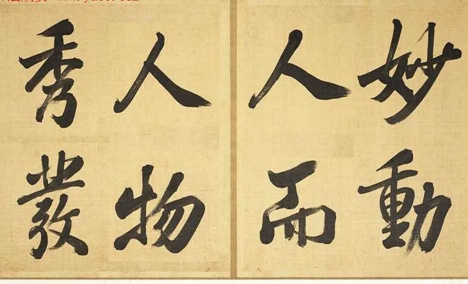 妙動
人而
人物
秀發